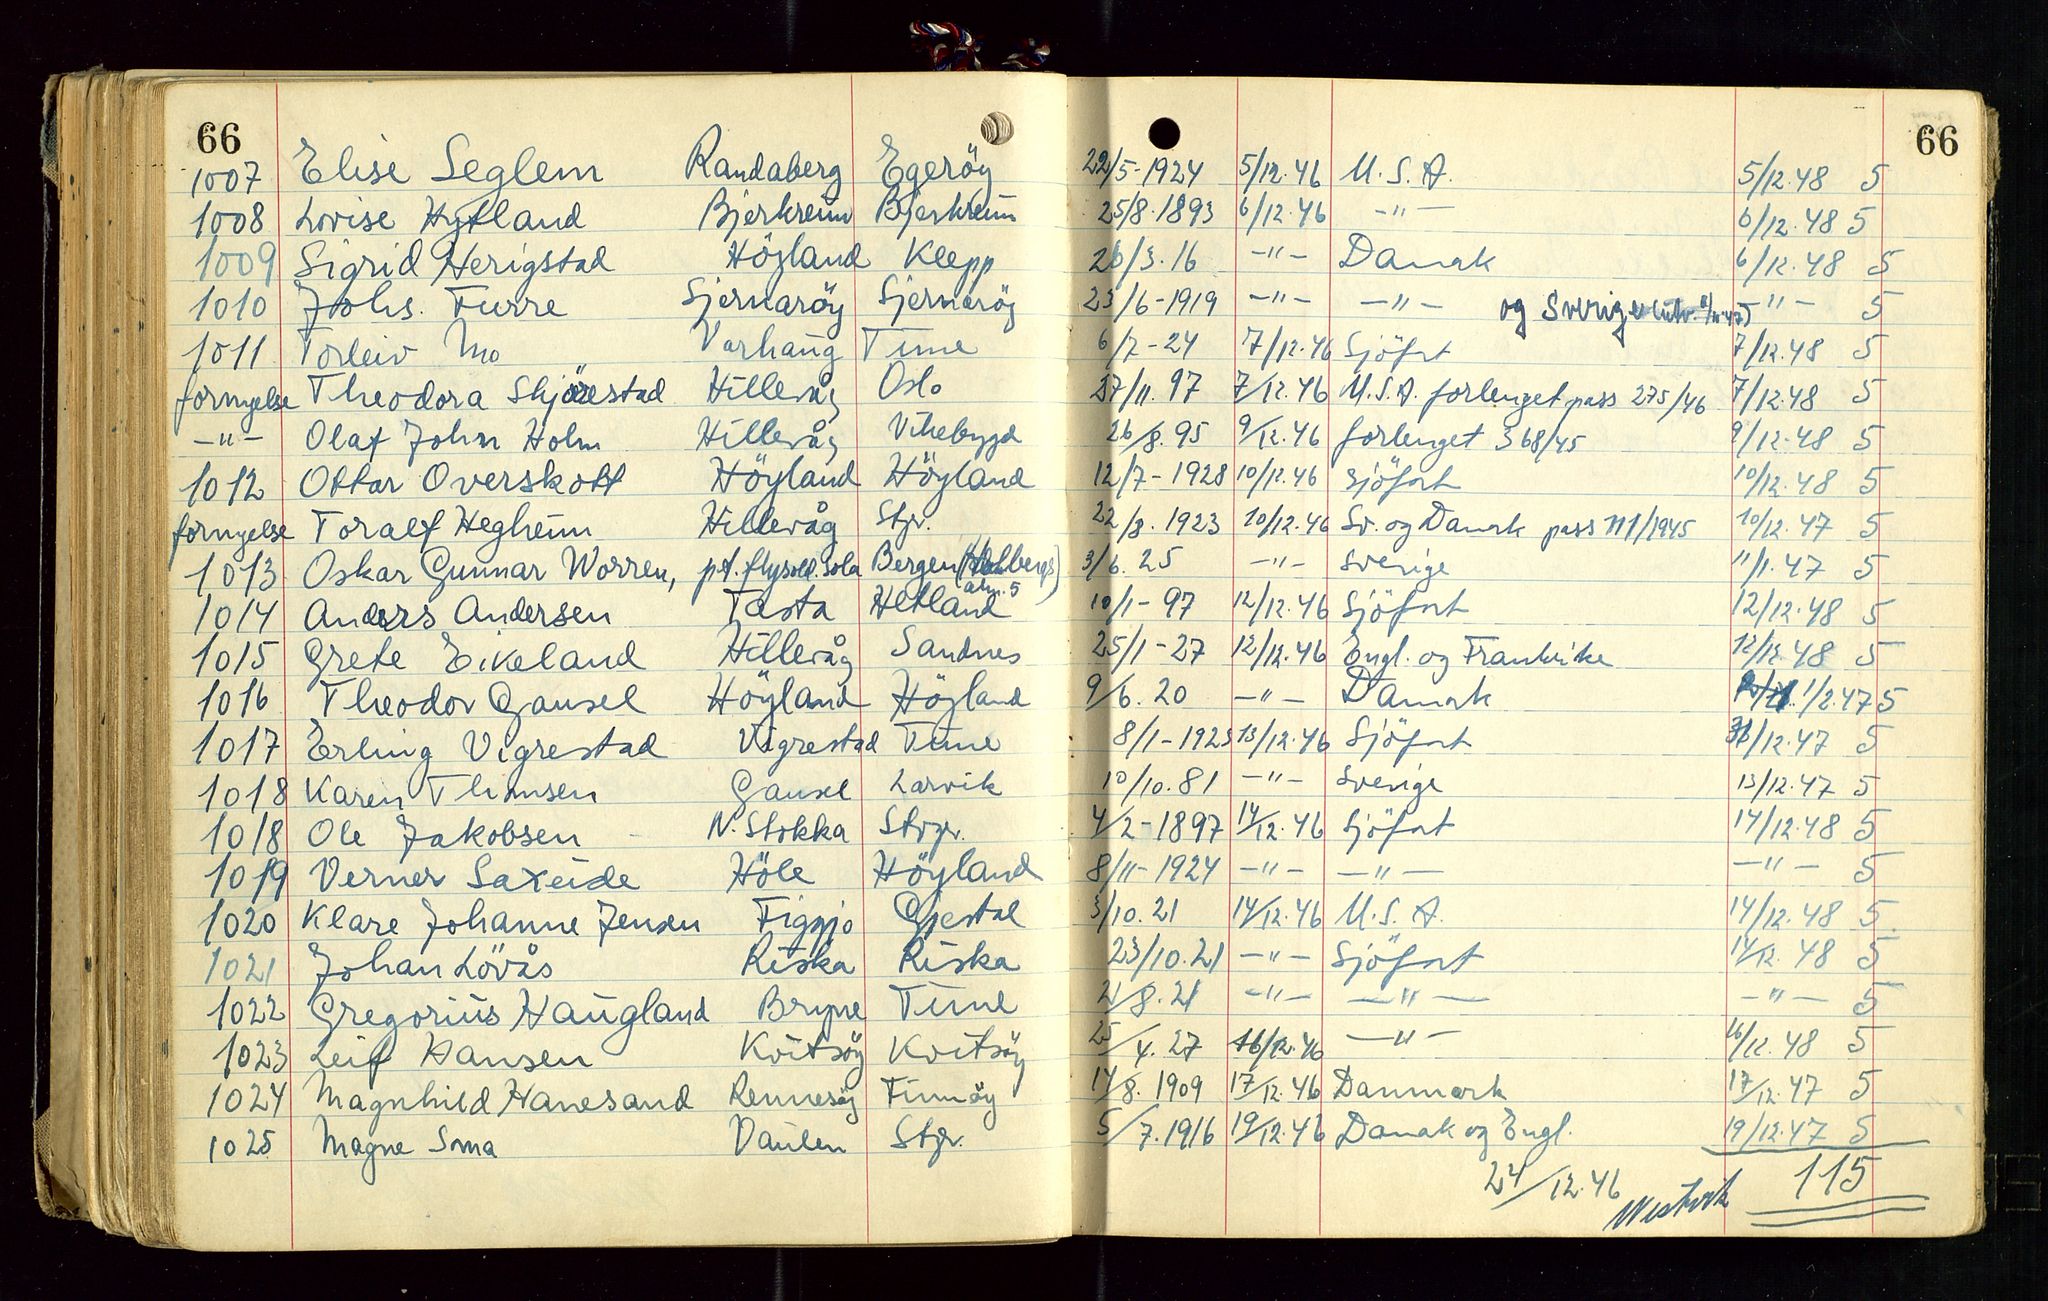 66 66
1007 Elise Seglem Randaberg Egeröy 22/5-1924 5/12.46 U.S.A. 5/12.48 5
1008 Lovise Hytland Bjerkreim Bjerkreim 25/8.1893 6/12.46 -"- 6/12.48 5
1009 Sigrid Herigstad Höyland Klepp 26/3.16 -"- Danmk 6/12.48 5
1010 Johs. Furre Sjernaröy Sjernaröy 23/6-1919 -"- -"- og Sverige (utv. /11 47) -"- 5
1011 Torleiv Mo Varhaug Time 6/7-24 7/12.46 Sjöfart 7/12.48 5
fornyelse Theodora Skjörestad Hillevåg Oslo 27/11.97 7/12.46 U.S.A. forlenget pass 275/46 7/12.48 5
-"- Olaf John Holm Hillevåg Vikebygd 26/8.95 9/12.46 forlenget 368/45 9/12.48 5
1012 Ottar Overskott Höyland Höyland 12/7-1928 10/12.46 Sjöfart 10/12.48 5
fornyelse Toralf Hegheim Hillevåg Stgr. 22/3.1923 10/12.46 Sv. og Danmk pass 111/1945 10/12.47 5
1013 Oskar Gunnar Worren, pt. flyvpl. Sola Bergen 3/6.25 -"- Sverige 11/1.47 5
1014 Anders Andersen Tasta Hetland 10/1-97 12/12.46 Sjöfart 12/12.48 5
1015 Grete Eikeland Hillevåg Sandnes 25/1-27 12/12.46 Engl. og Frankrike 12/12.48 5
1016 Theodor Gausel Höyland Höyland 9/6.20 -"- Danmk 1/2.47 5
1017 Erling Vigrestad Vigrestad Time 8/1-1923 13/12.46 Sjöfart /12.47 5
1018 Karen Thomsen Gausel Larvik 10/10.81 -"- Sverige 13/12.47 5
1018 Ole Jakobsen N. Stokka Stvgr. 4/2-1897 14/12.46 Sjöfart 14/12.48 5
1019 Verner Saxeide Höle Höyland 8/11-1924 -"- -"- -"- 5
1020 Klare Johanne Jensen Figgjo Gjestal 3/10.21 14/12.46 U.S.A. 14/12.48 5
1021 Johan Lövås Riska Riska 23/10.21 -"- Sjöfart 14/12.48 5
1022 Gregorius Haugland Bryne Time 21/8.21 -"- -"- -"- 5
1023 Leif Hansen Kvitsöy Kvitsöy 25/4.27 16/12.46 -"- 16/12.48 5
1024 Magnhild Hanesand Rennesöy Finnöy 14/8.1909 17/12.46 Danmark 17/12.47 5
1025 Magne Sma Vaulen Stgr. 5/7.1916 19/12.46 Danmk og Engl. 19/12.47 5
24/12.46 115